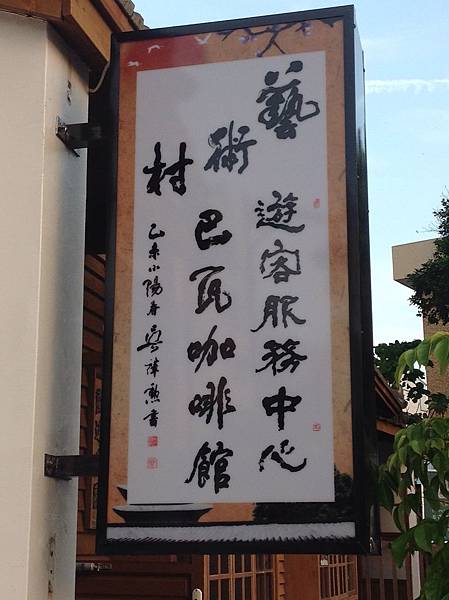 藝術村
遊客服務中心
巴瓦咖啡館
乙未小陽春吳肇勲書